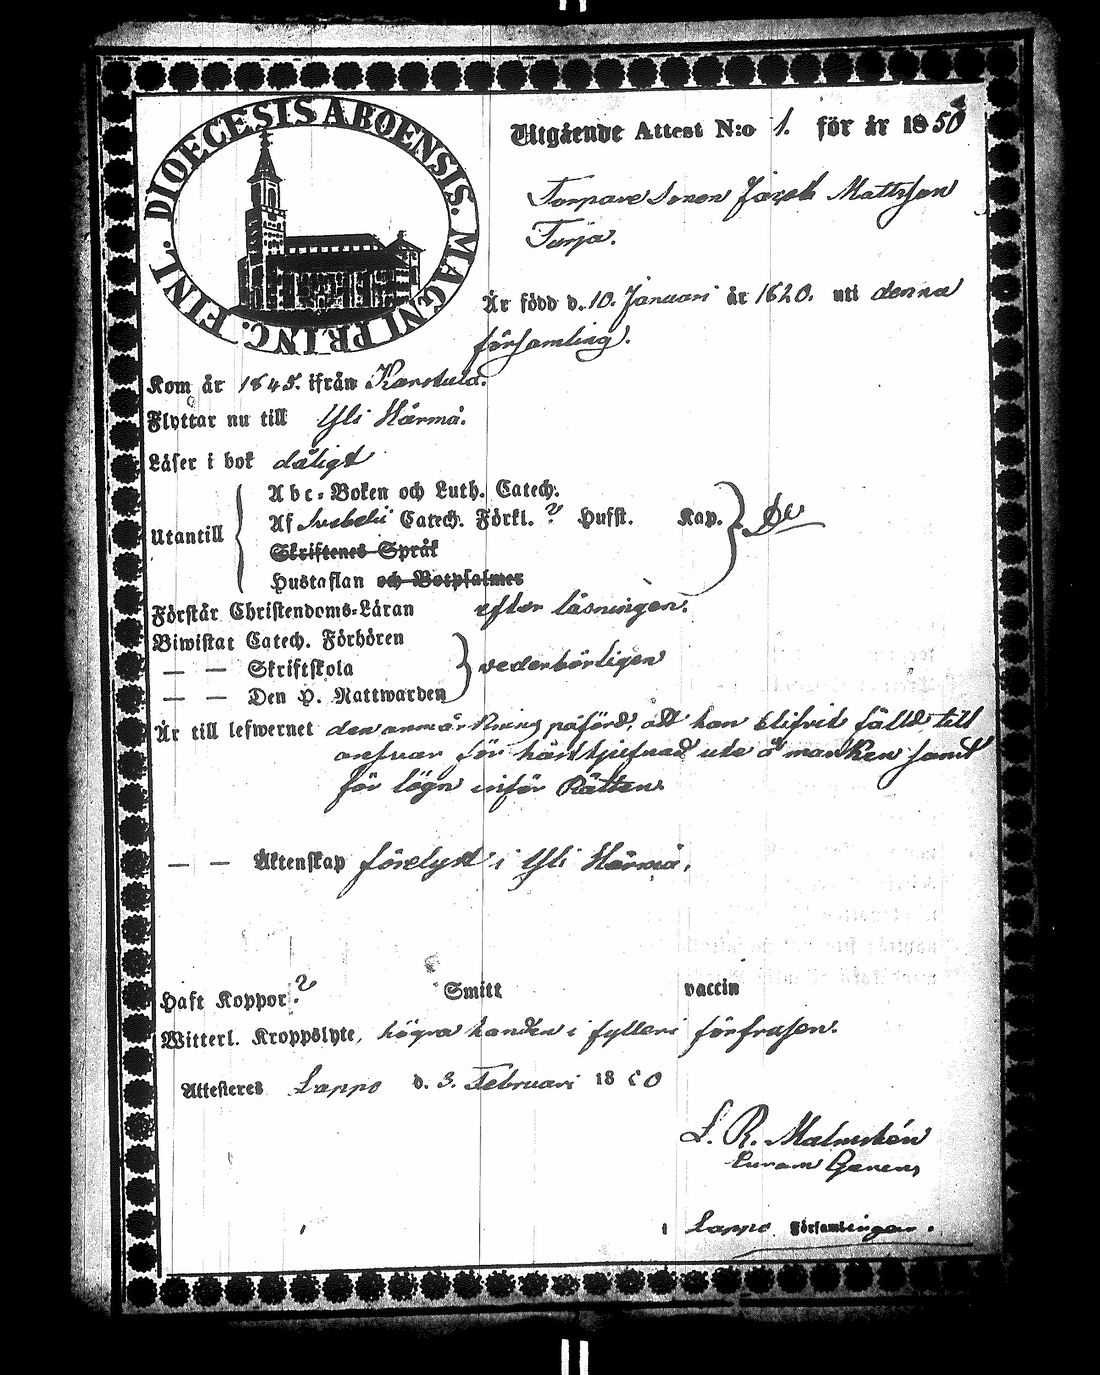 DIOECESIS ABOENSIS. MAGNI PRINC. FINL.
Utgående Attest N:o 1. för år 1850
Torpare Sonen Jacob Mattsson
Turja.
Är född d. 10. Januari år 1820. uti denna
församling.
Kom år 1845. ifrån Karstula.
Flyttar nu till Yli Härmä.
Läser i bok dåligt
Utantill
Abc-Boken och Luth. Catech.
Af Svebelii Catech. Förkl. ? Husst. Kap.
Skriftenes Språk
Hustaflan och Botpsalmer
Förstår Christendoms-Läran efter läsningen.
Biwistat Catech. Förhören
— — Skriftskola vederbörligen
— — Den H. Nattwarden
Är till lefwernet den anmärkning påförd, att han blifvit fälld till
ansvar för hästtjufnad ute å marken samt
för lögn inför Rätten.
— — Äktenskap förelyst i Yli Härmä.
Haft Koppor ? Smitt vaccin
Witterl. Kroppslyte, högra handen i fylleri förfrusen.
Attesteres Lappo d. 3. Februari 1850
L. R. Malmsten
Curam Gerens
Lappo Församlingen.